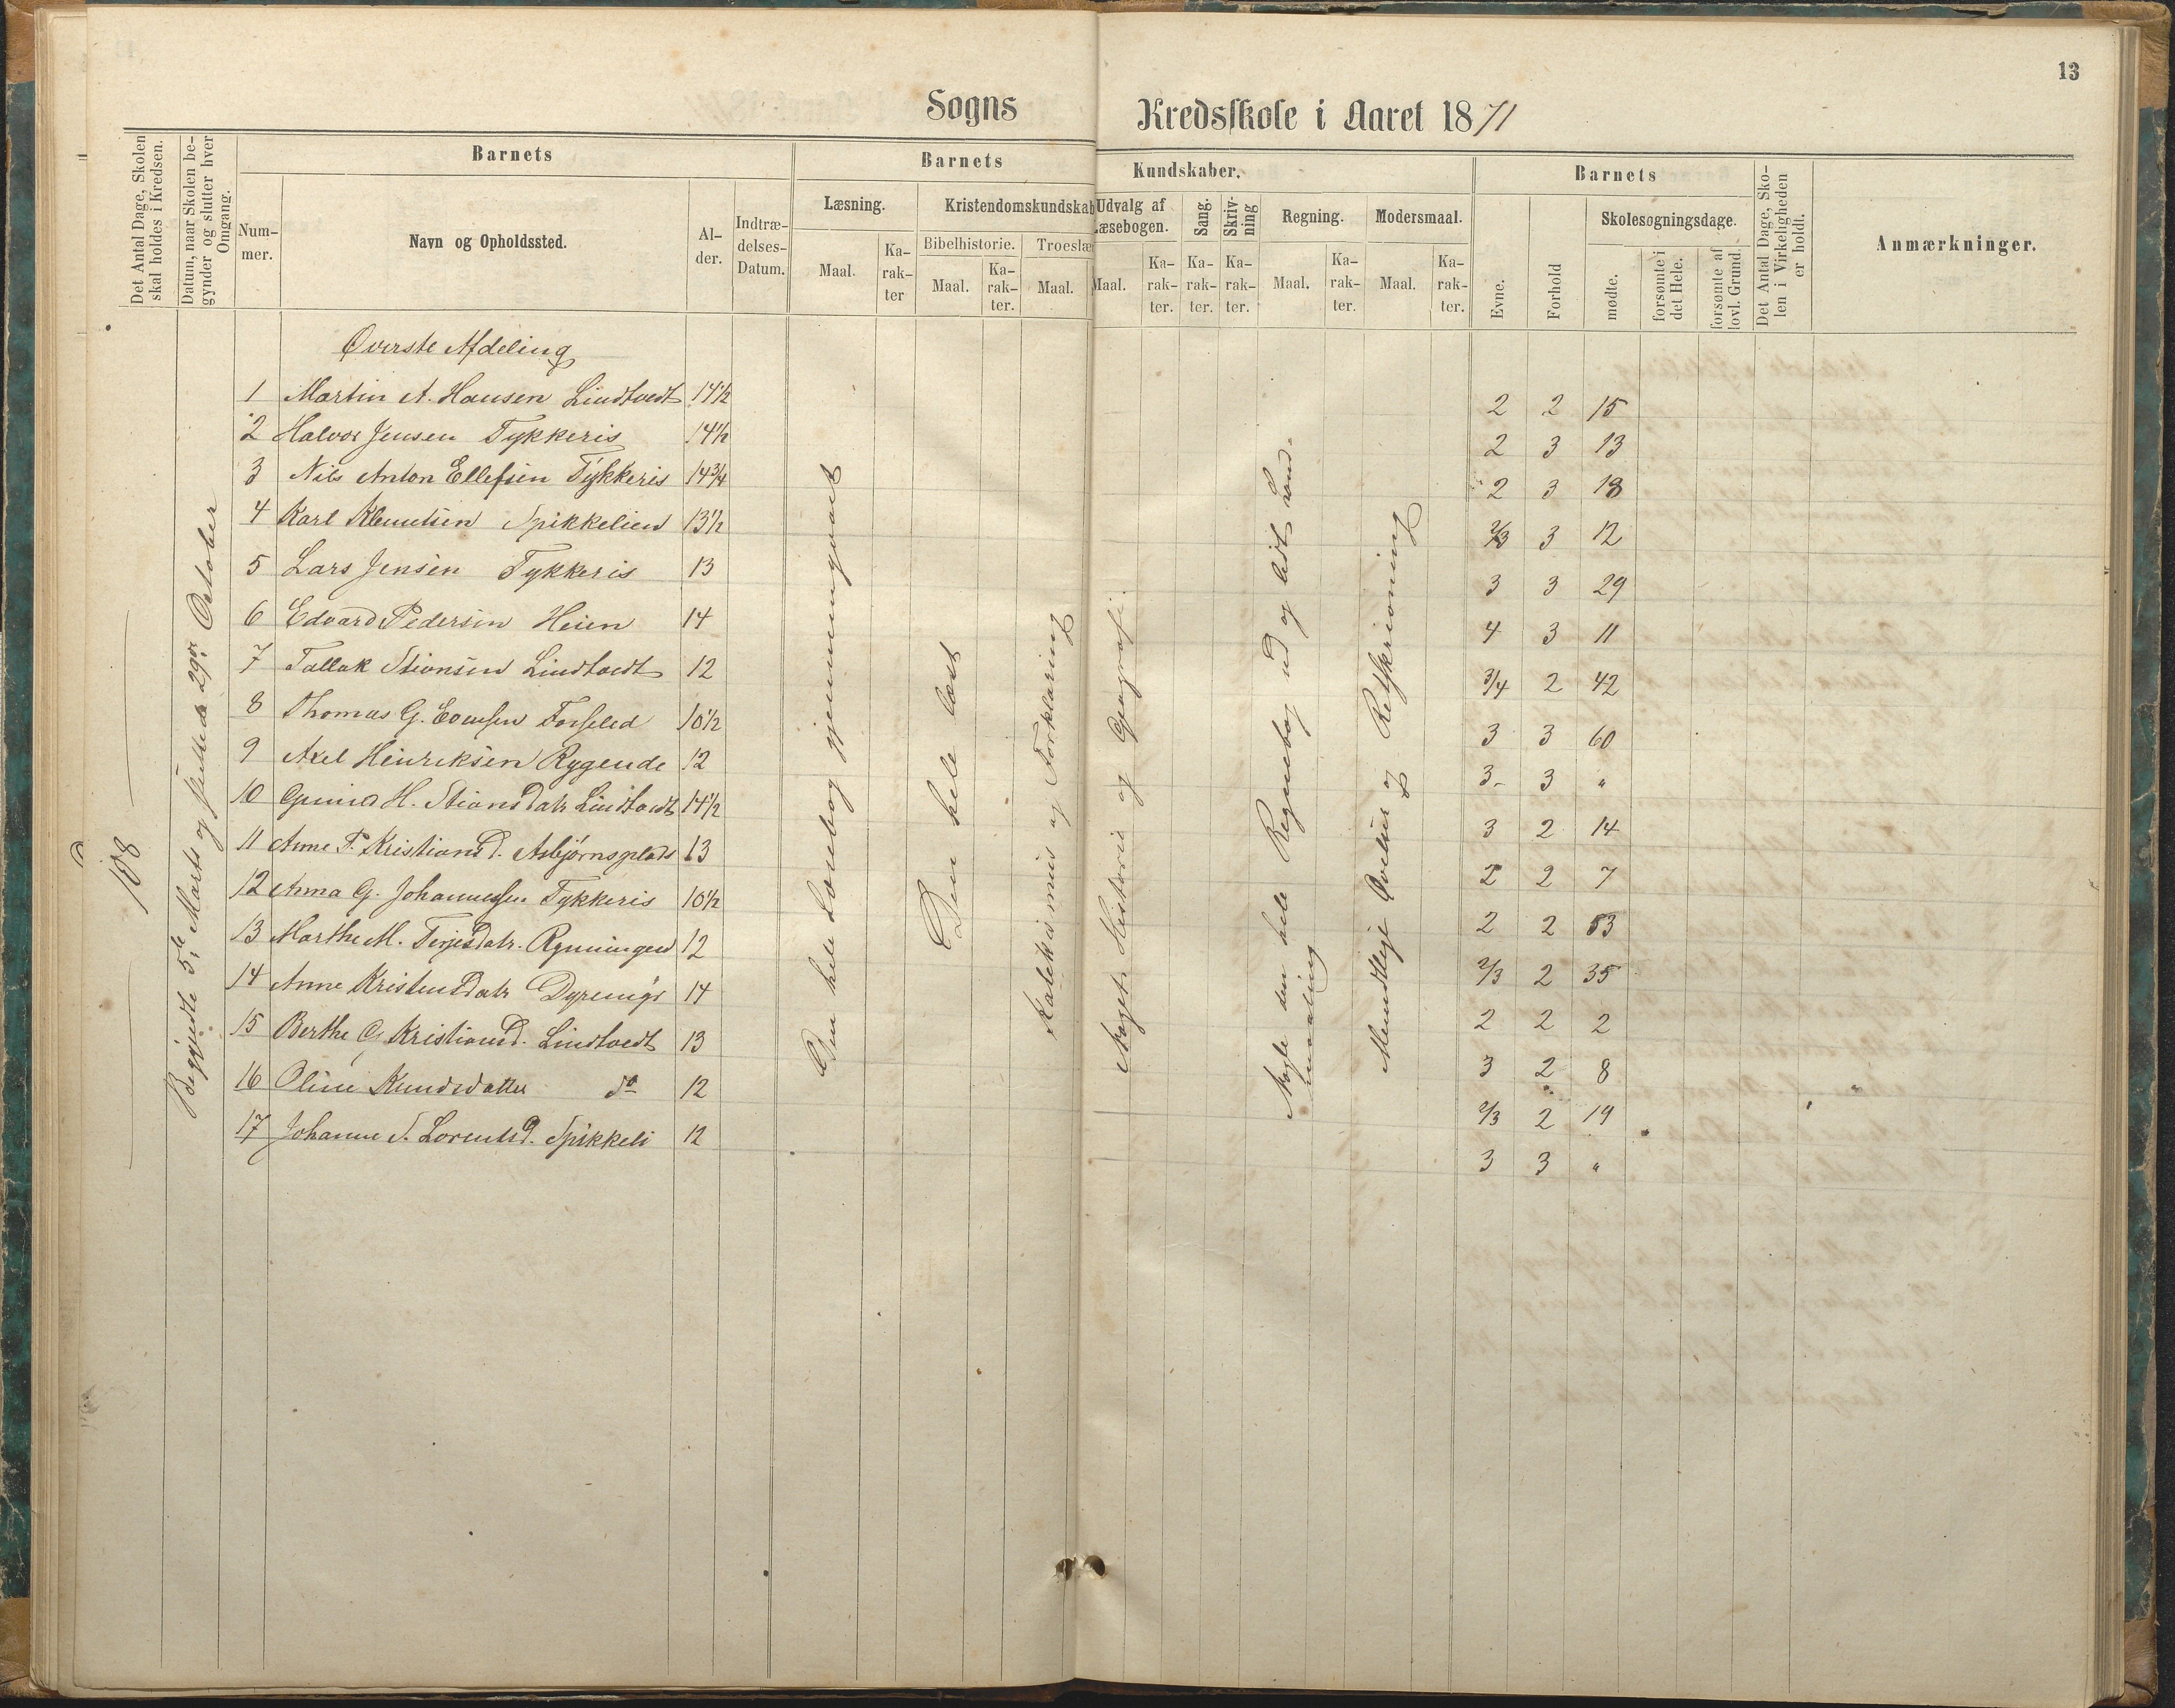 13
Sogns Kredsskole i Aaret 1871
Det Antal Dage, Skolen skal holdes i Kredsen.
Datum, naar Skolen begynder og slutter hver Omgang.
Barnets
Nummer.
Navn og Opholdssted.
Alder.
Indtrædelses-Datum.
Barnets Kundskaber.
Læsning.
Maal.
Karakter
Kristendomskundskab
Bibelhistorie.
Maal.
Karakter.
Troeslæ
Maal.
Udvalg af Læsebogen.
Maal.
Karakter.
Sang.
Karakter.
Skrivning
Karakter.
Regning.
Maal.
Karakter.
Modersmaal.
Maal.
Karakter.
Barnets
Evne.
Forhold
Skolesøgningsdage.
mødte.
forsømte i det Hele.
forsømte af lovl. Grund.
Det Antal Dage, Skolen i Virkeligheden er holdt.
Anmærkninger.
108
Begyndte 5te Marts og sluttede 29de October
Øverste Afdeling
1 Martin A. Hansen Lindtvedt 14½ 2 2 15
2 Halvor Jensen Tykkeris 14½ 2 3 13
3 Nils Anton Ellefsen Tykkeris 14¾ 2 3 18
4 Karl Klemetsen Spikkelien 13½ 2/3 3 12
5 Lars Jensen Tykkeris 13 3 3 29
6 Edvard Pedersen Heien 14 4 3 11
7 Tallak Stiansen Lindtvedt 12 3/4 2 42
8 Thomas G. Evensen 10½ 3 3 60
9 Axel Henriksen Rygende 12 3- 3 "
10 H. Stiansdatr Lindtvedt 14½ 3 2 14
11 Anne P. Kristiansd. Asbjørnsplads 13 2 2 7
12 Anna G. Johannessen Tykkeris 10½ 2 2 53
13 Marthe M. Terjesdatr. Rynningen 12 2/3 2 35
14 Anne Kristensdatr 14 2 2 2
15 Berthe G Kristiansd. Lindtvedt 13 3 2 8
16 Oline Knudsdatter do 12 2/3 2 19
17 Johanne S. Lorentsd. Spikkeli 12 3 3 "
Den hele Læsebog gjennemgaaet
Den hele læst
Katekismus og Forklaring
Noget Historie og Geografi.
Nogle den hele Regnebog ud og lidt
Mundtlige Øvelser og Retskrivning